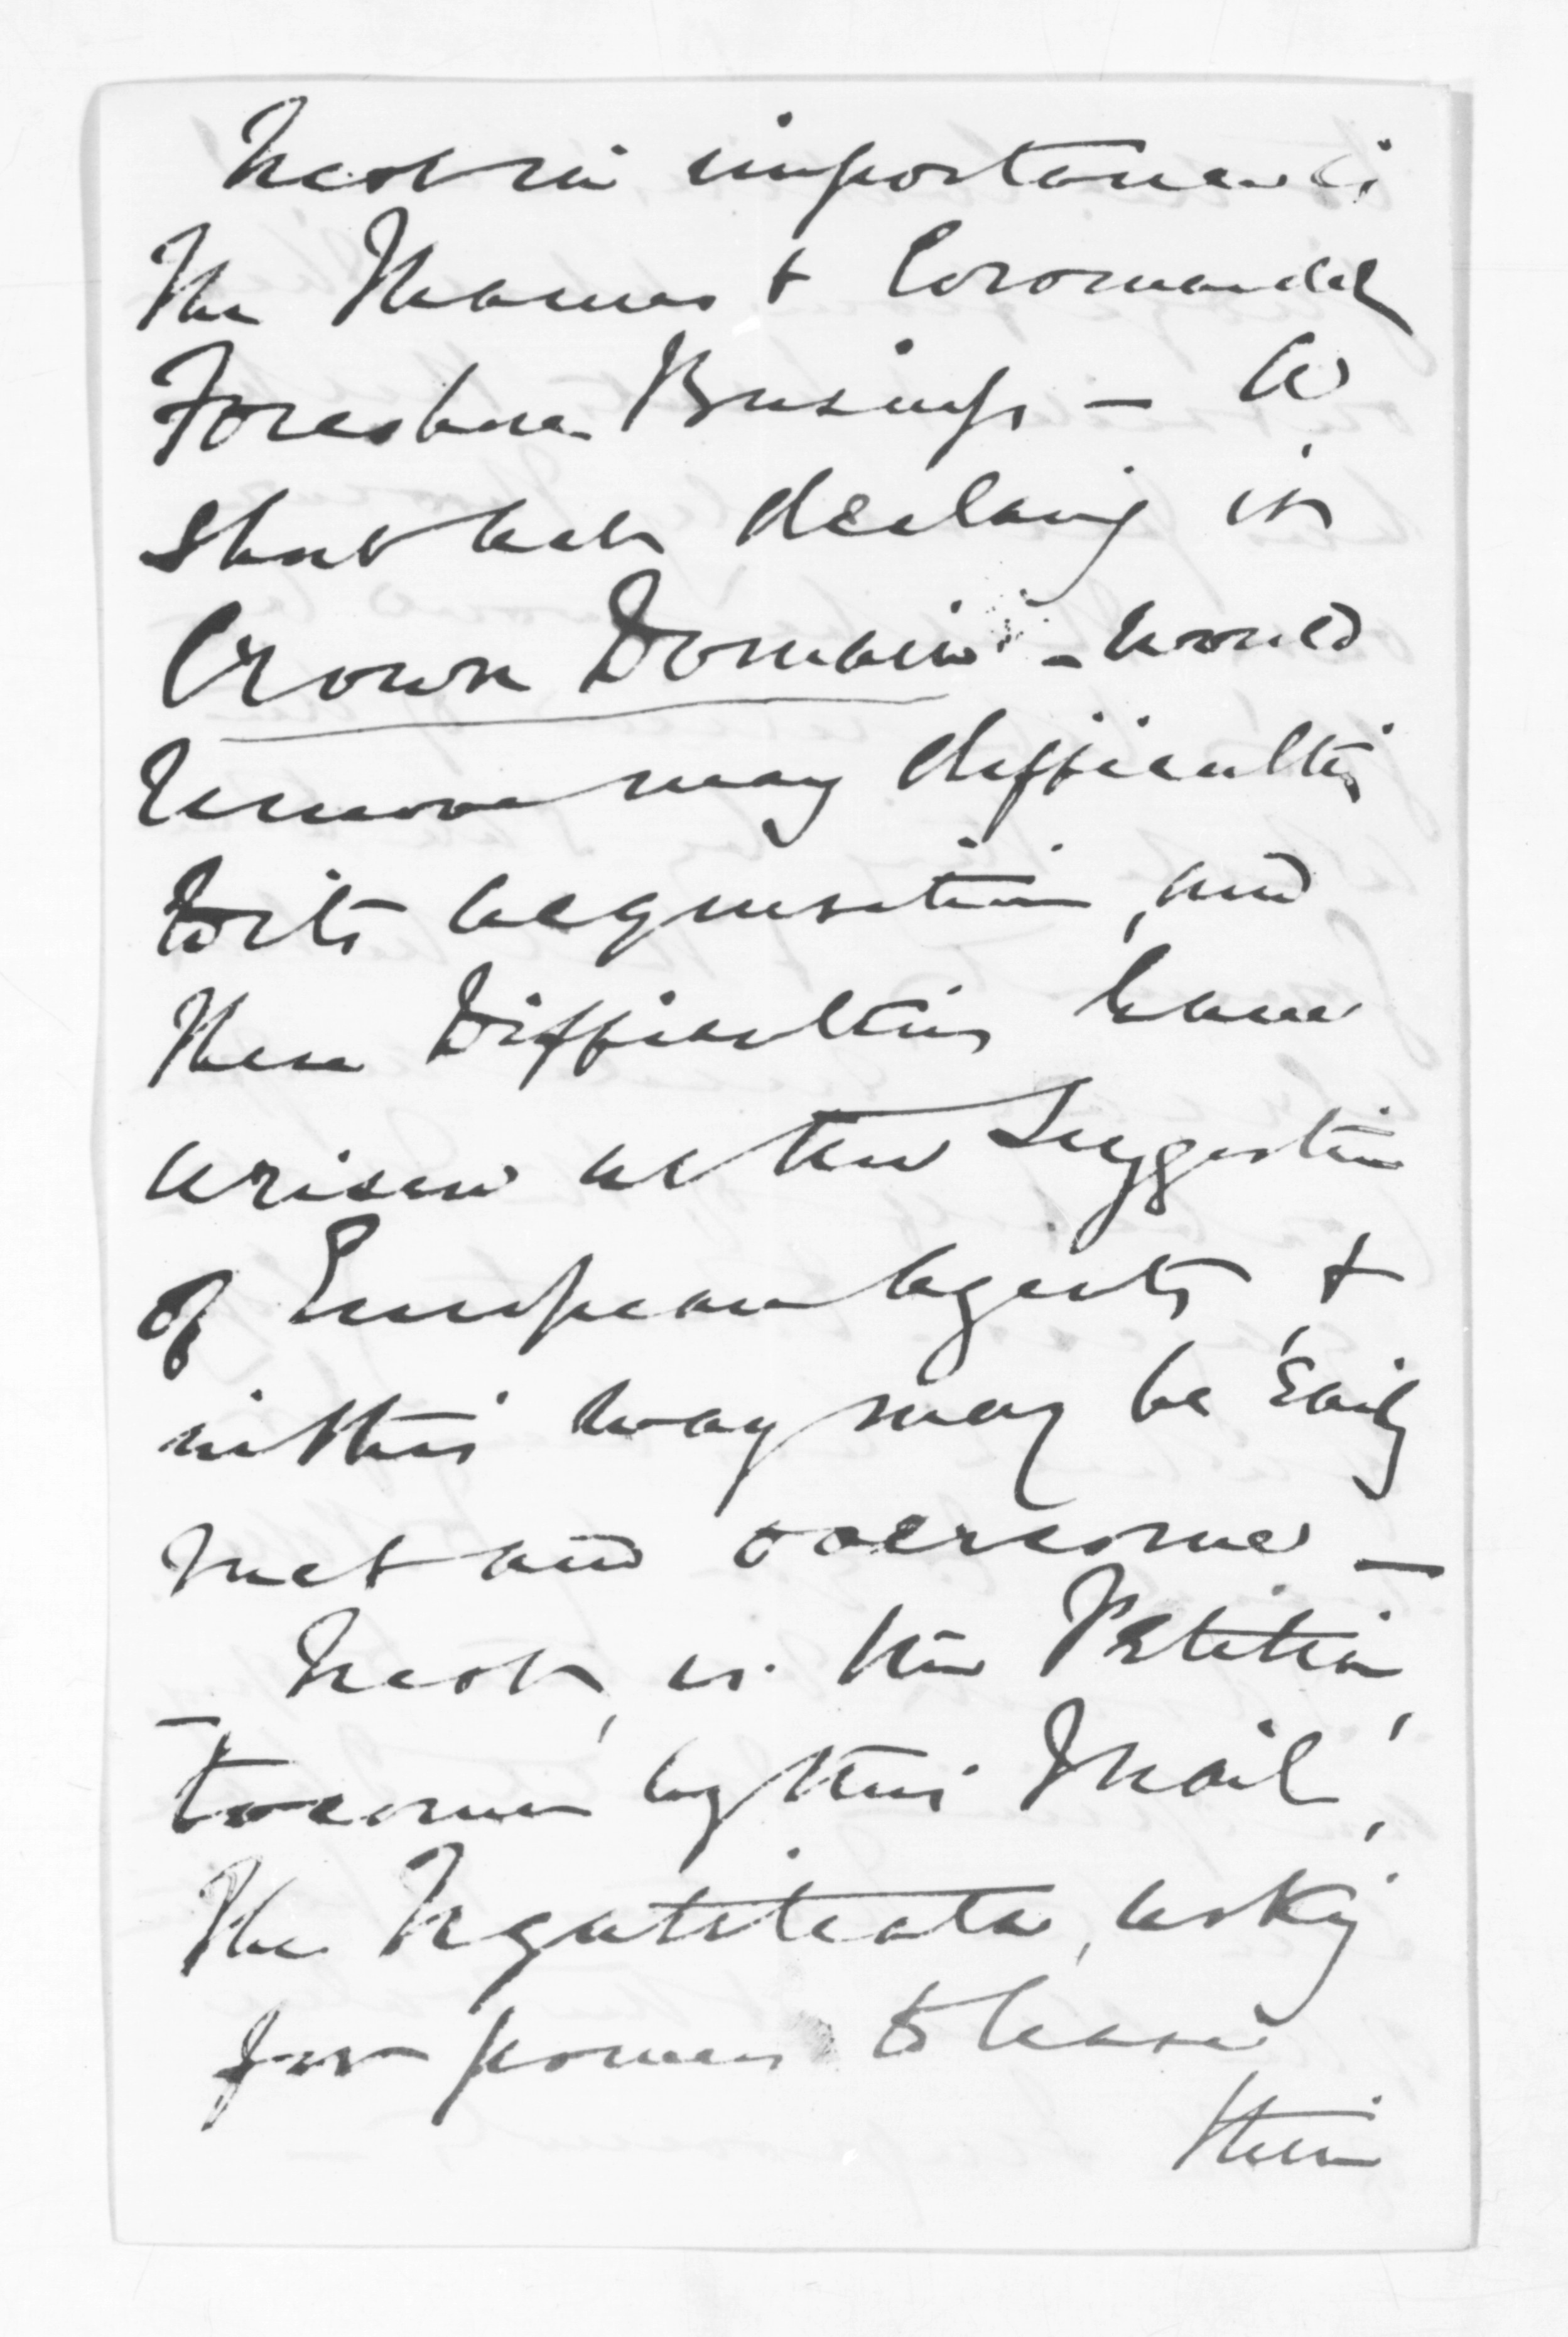 Next in importance is
the Thames & Coromandel
Foreshore Business – A
short act declaring it
Crown Domain – would
remove many difficulties
to its acquisition, and
these Difficulties have
arisen at the Suggestion
of European agents, &
in this way may be easily
met and overcome –
Next, is the Petition,
– to come by this Mail,
the Ngatiteata, asking
for power to lease
their